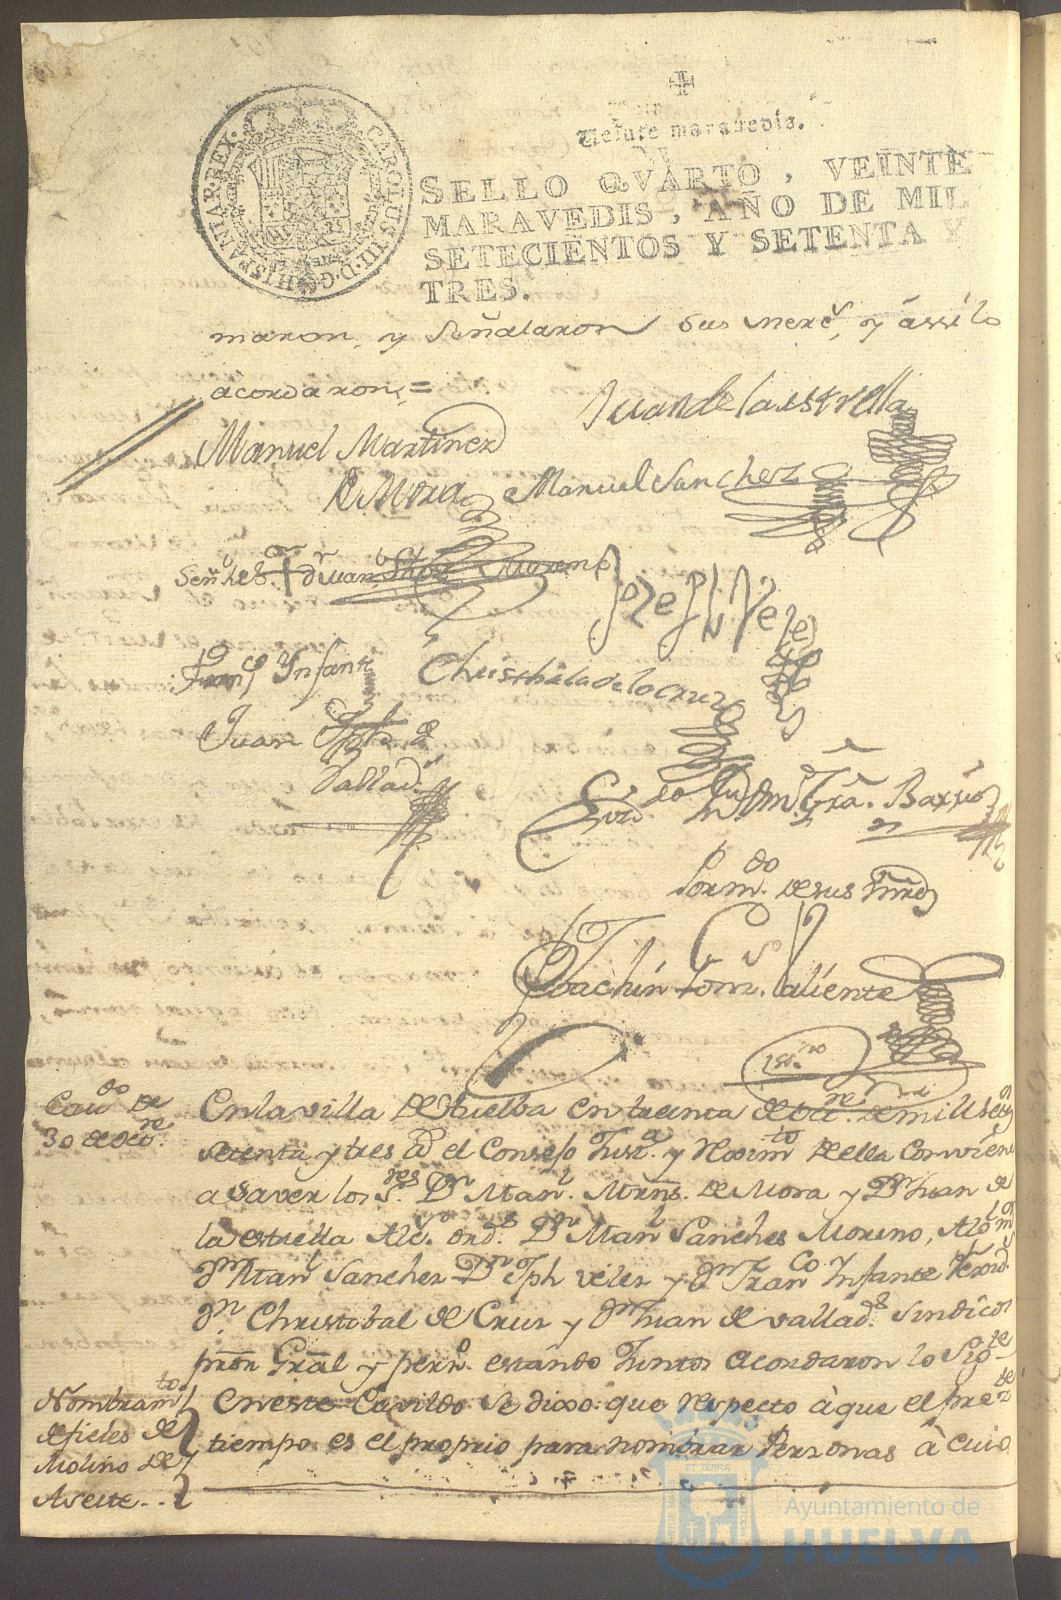 CAROLUS III D G HISPANIAR REX
Veinte maravedis.
SELLO QVARTO, VEINTE
MARAVEDIS, AÑO DE MIL
SETECIENTOS Y SETENTA Y
TRES.
maron, y señalaron sus merc.s, y assi lo
acordaron,=
Juan de la estrella
Manuel Martinez
de Mora Manuel Sanchez
Señ
Jozeph Velez
Fran.co Ynfante Christl de la Cruz
Juan de
Vallad.
Barrio
Por m.do de sus
Joachin Valiente
Cav.do de
30 de
En la villa De Huelba en treinta de de mill set.s
setenta y tres a.s el Consejo Just.a y Reximto De ella Conviene
a saver los S.res Dn Man.l Mrns. de Mora y Dn Juan de
la estrella Alc.s ord.s Dn Man.l Sanches Moreno,
dn Man.l Sanchez Dn Jph velez y dn Fran.co Ynfante
dn. Christobal de Cruz y dn Juan de vallad.d Sindicos
pror Gral y pern.o estando Juntos acordaron lo Sig.te
Nombram.to
de fieles de
Molino de
Aseite...
En este Cavildo se dixo: que respecto à que el pre.te
tiempo es el proprio para nombrar Personas à cuio
Ayuntamiento de
HUELVA